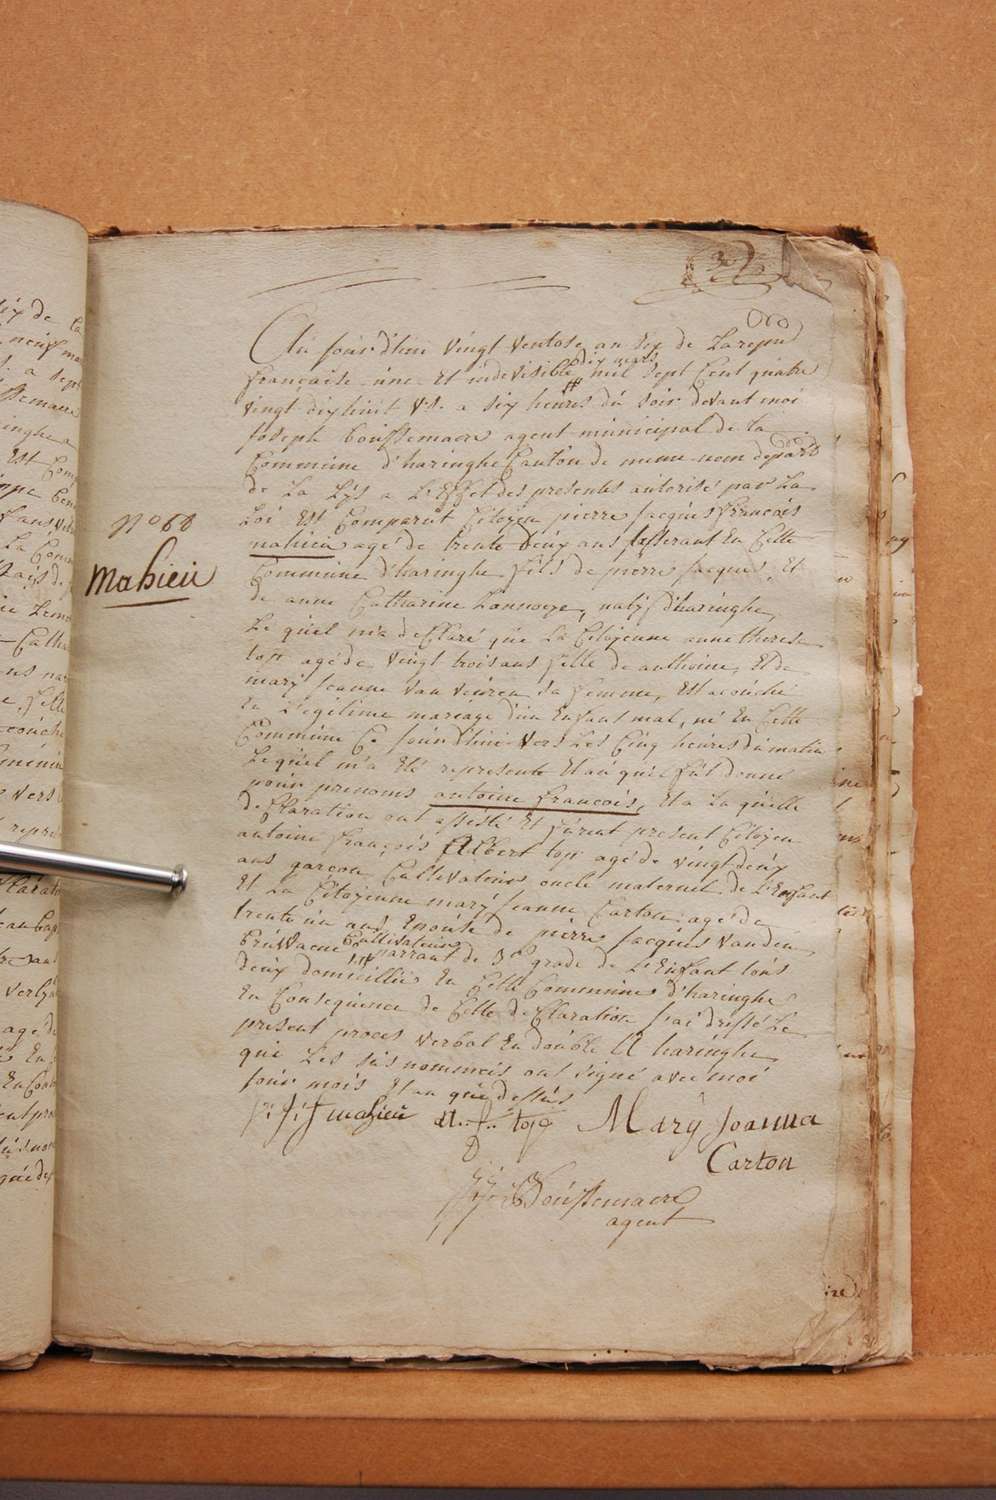 N° 68
Mahieu
Au jour d'hui vingt ventose an six de La repu
française une et indevisible dix mars mil sept Cent quatre
vingt dix huit v.s. a six heures du soir devant moi
Joseph Boussemaere agent municipal de la
Commune d'haringhe Canton de meme nom depart
de La Lÿs a L'Effet des presentes autorisé par La
Loi Est Comparut Citoÿen pierre Jacques francois
mahieu agé de trente deux ans en Cette
Commune d'haringhe fils de pierre Jacques Et
de anne Catharine natif d'haringhe
Le quel m'a declaré que La Citoÿenne anne therese
top agé de vingt trois ans fille de anthoine Et de
marÿ Jeanne sa femme, Est acouché
En Legitime mariage d'un Enfant mal, né En Cette
Commune Ce jour d'hui vers Les Cinq heures du matin
Lequel m'a Eté representé Et au quel fut donné
pour prenoms antoine francois, Et a La quelle
declaration ont assisté Et furent present Citoÿen
antoine françois Albert top agé de vingt deux
ans garçon Cultivateur oncle maternel de L'Enfant
Et La Citoÿenne marÿ Jeanne Carton agé de
trente un ans Epouse de pierre Jacques vanden
Cultivateur parrant de 3e grade de L'Enfant tous
deux domicillié En Cette Commune d'haringhe
En Consequence de Cette declaration j'ai dressé Le
present proces verbal En double A haringhe
qui Les sus nommés ont signé avec moi
jour mois Et an que dessus
p: J: F mahieu A. F. top Marÿ Joanna
Carton
Boussemaere
agent